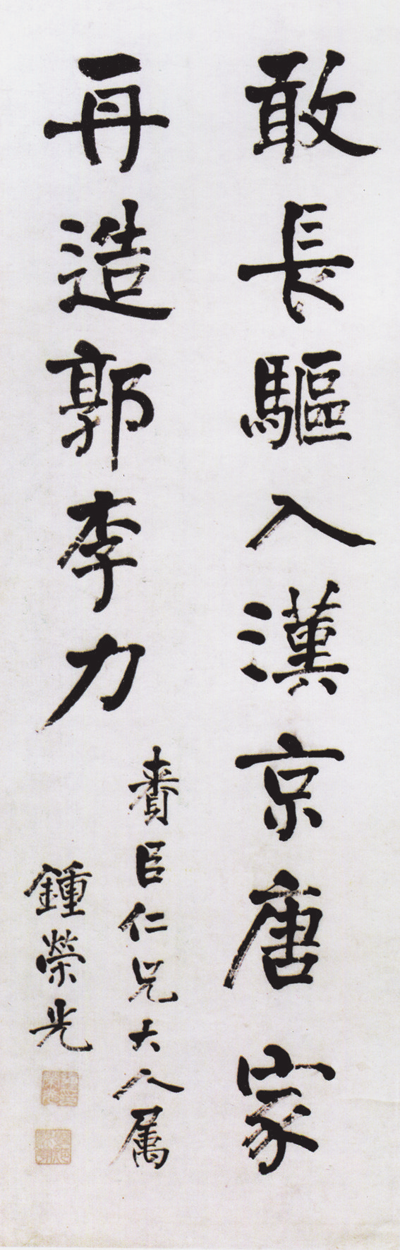 敢長驅入漢京唐家
再造郭李力
賚臣仁兄大人属
鍾榮光